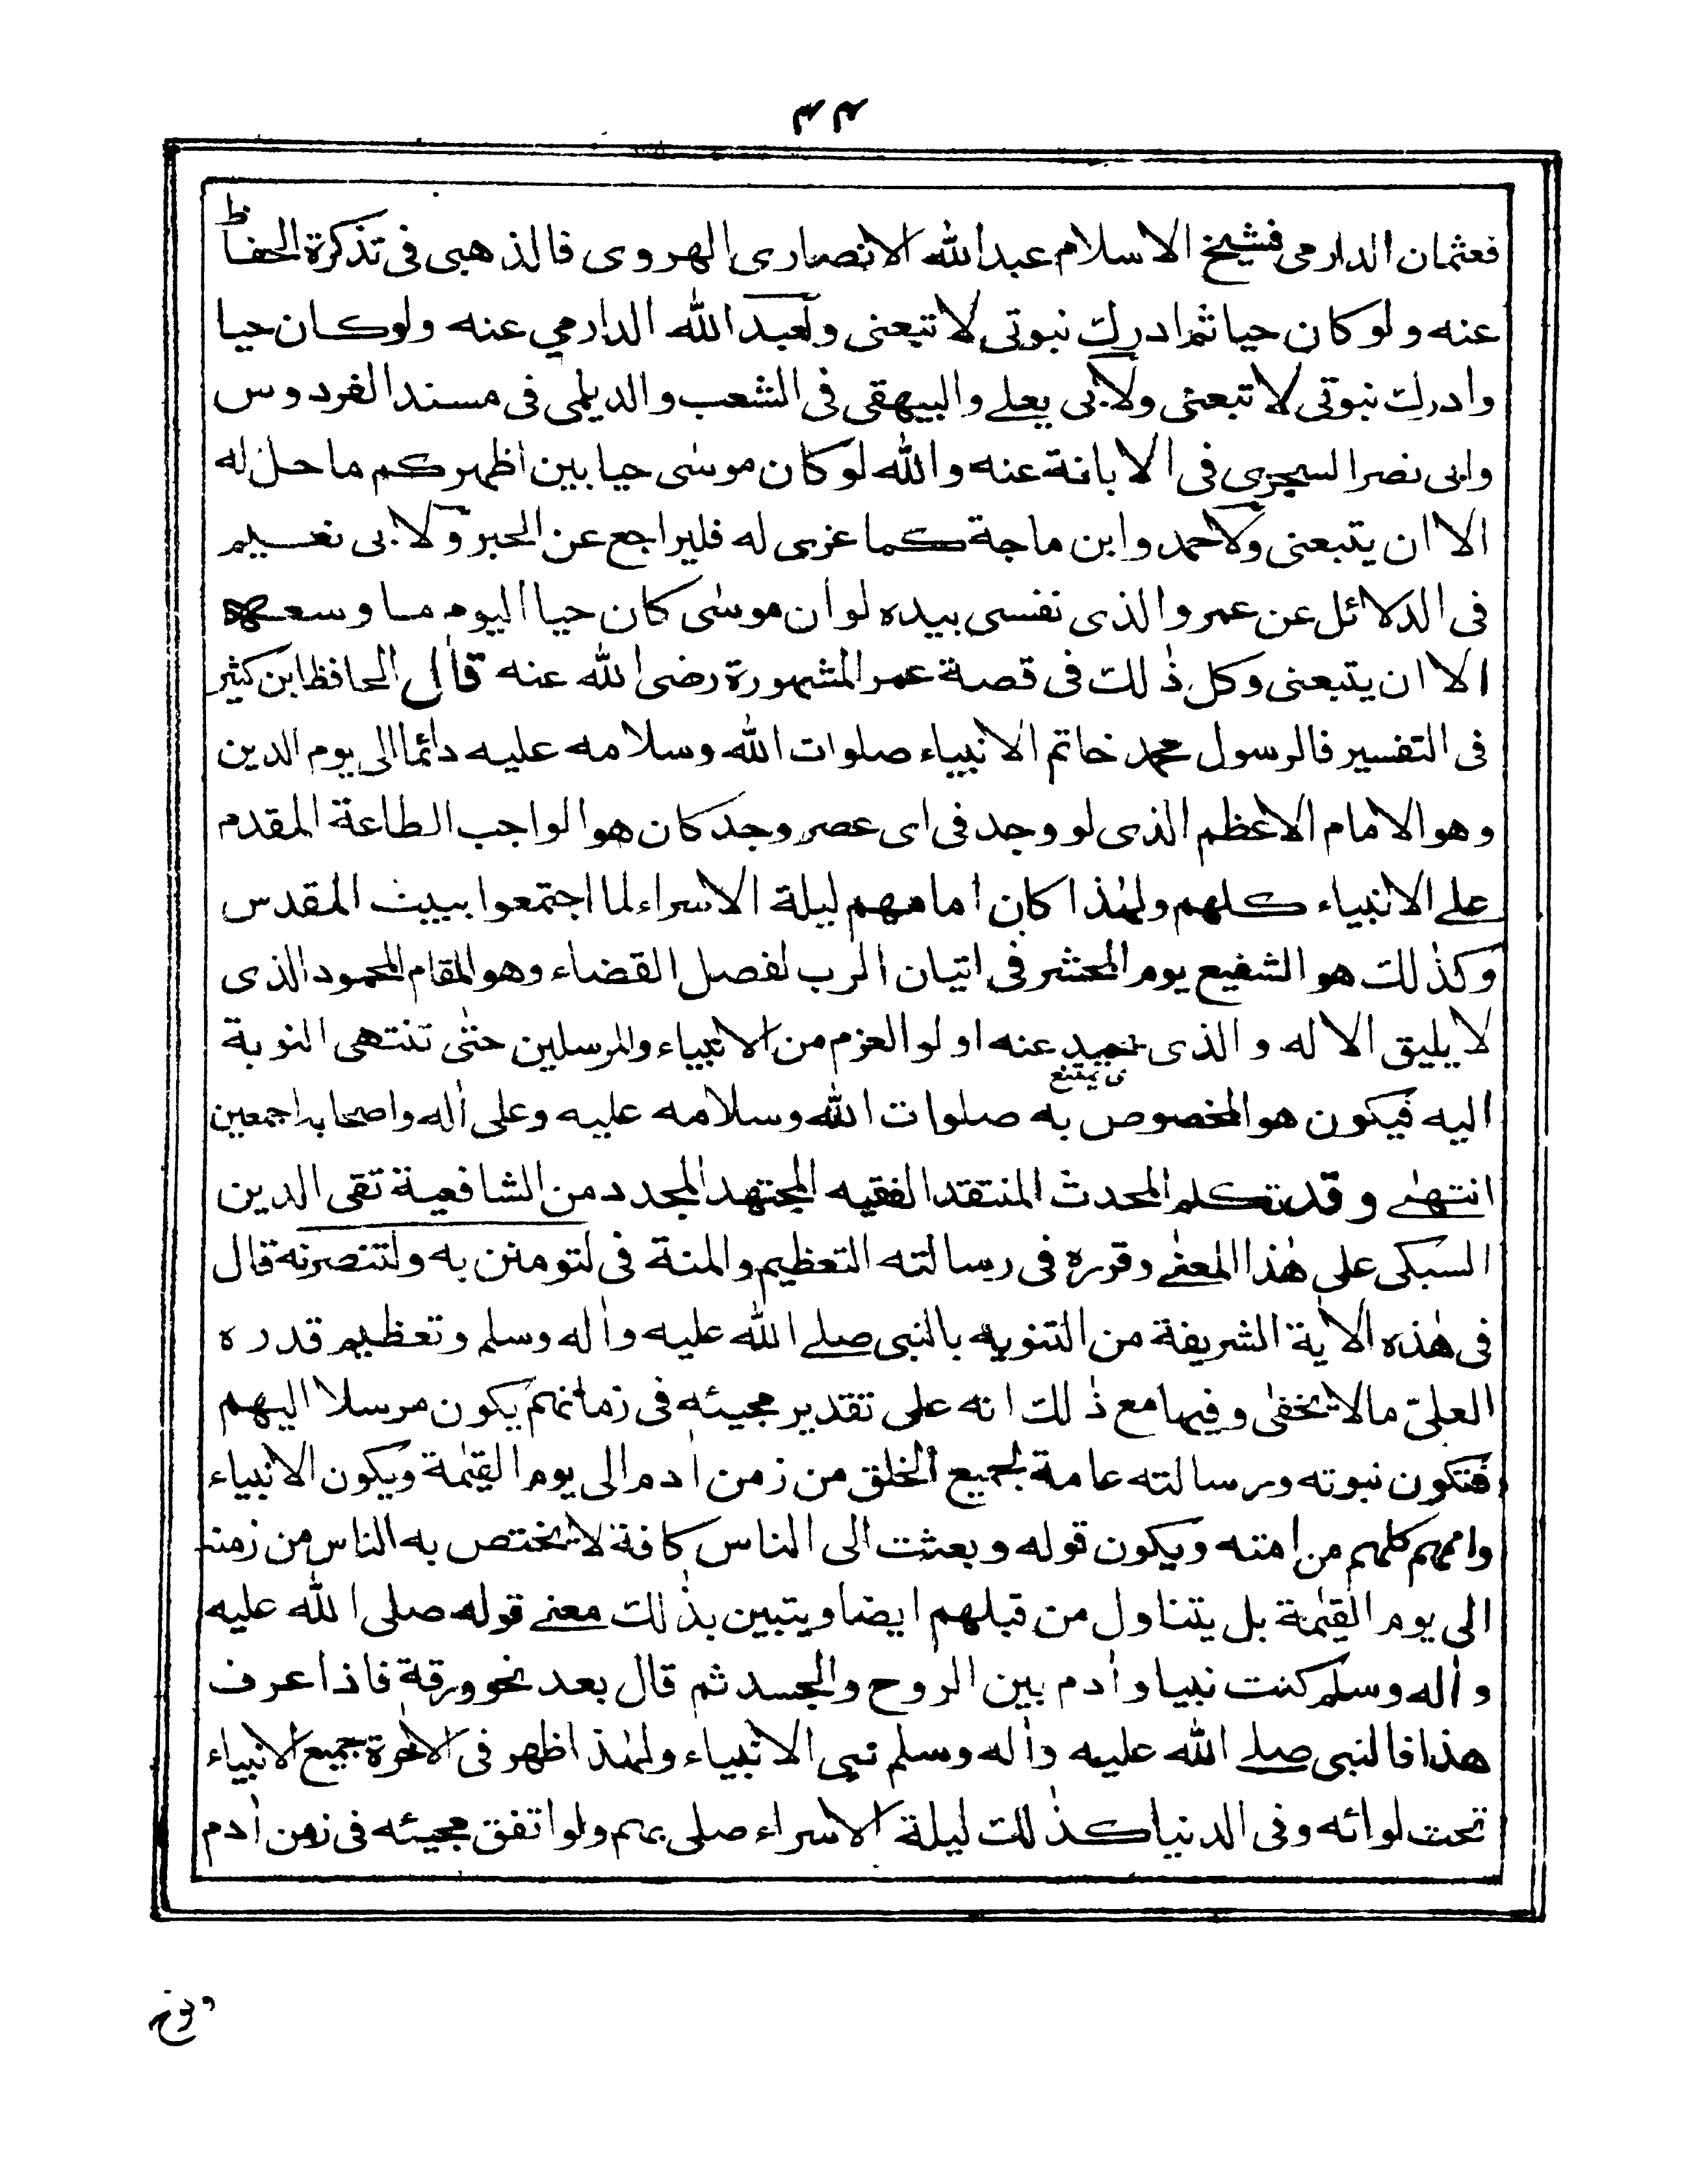 ٣٣
فعثمان الدارمى فشيخ الاسلام عبد الله الانصارى الهروى فالذهبى فى تذكرة الحفاظ
عنه ولو كان حيا ثم ادرك نبوتى لاتبعنى ولعبد الله الدارمي عنه ولو كان حيا
وادرك نبوتى لاتبعنى ولابى يعلے والبيهقى فى الشعب والديلمى فى مسند الفردوس
وابى نصر السجزى فى الابانة عنه والله لو كان موسٰى حيا بين اظهركم ما حل له
الا ان يتبعنى ولاحمد وابن ماجة كما عزى له فليراجع عن الحبر ولابى نعيم
فى الدلائل عن عمر والذى نفسى بيده لو ان موسٰى كان حيا اليوم ما وسعه
الا ان يتبعنى وكل ذٰلك فى قصة عمر المشهورة رضى الله عنه قال الحافظ ابن كثير
فى التفسير فالرسول محمد خاتم الانبياء صلوات الله وسلامه عليه دائما الى يوم الدين
وهو الامام الاعظم الذى لو وجد فى اى عصر وجد كان هو الواجب الطاعة المقدم
علے الانبياء كلهم ولهٰذا كان امامهم ليلة الاسراء لما اجتمعوا ببيت المقدس
وكذٰلك هو الشفيع يوم المحشر فى اتيان الرب لفصل القضاء وهو المقام المحمود الذى
لا يليق الا له والذى يحيد عنه اولو العزم من الانبياء والمرسلين حتٰى تنتهى النوبة
ى يمتنع
اليه فيكون هو المخصوص به صلوات الله وسلامه عليه وعلى اٰله واصحابه اجمعين
انتهٰے وقد تكلم المحدث المنتقد الفقيه المجتهد المجدد من الشافعية تقى الدين
السبكى على هٰذا المعنٰے وقرره فى رسالته التعظيم والمنة فى لتومنن به ولتنصرنه قال
فى هٰذه الاٰية الشريفة من التنويه بالنبى صلے الله عليه واٰله وسلم وتعظيم قدره
العلىّ ما لا يخفٰى وفيها مع ذٰلك انه على تقدير مجيئه فى زمانهم يكون مرسلا اليهم
فتكون نبوته ورسالته عامة لجميع الخلق من زمن اٰدم الى يوم القيٰمة ويكون الانبياء
واممهم كلهم من امته ويكون قوله وبعثت الى الناس كافة لا يختص به الناس من زمنه
الى يوم القيٰمة بل يتناول من قبلهم ايضا ويتبين بذٰلك معنے قوله صلى الله عليه
واٰله وسلم كنت نبيا واٰدم بين الروح والجسد ثم قال بعد نحو ورقة فاذا عرف
هذا فالنبى صلے الله عليه واٰله وسلم نبى الانبياء ولهٰذا ظهر فى الاٰخرة جميع الانبياء
تحت لوائه وفى الدنيا كذٰلك ليلة الاسراء صلى بهم ولو اتفق مجيئه فى زمن اٰدم
ونوح